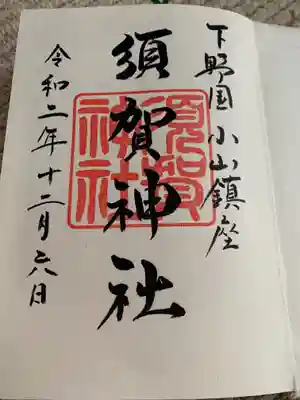 下野国 小山鎮座
須賀神社
須賀
神社
令和二年十二月六日